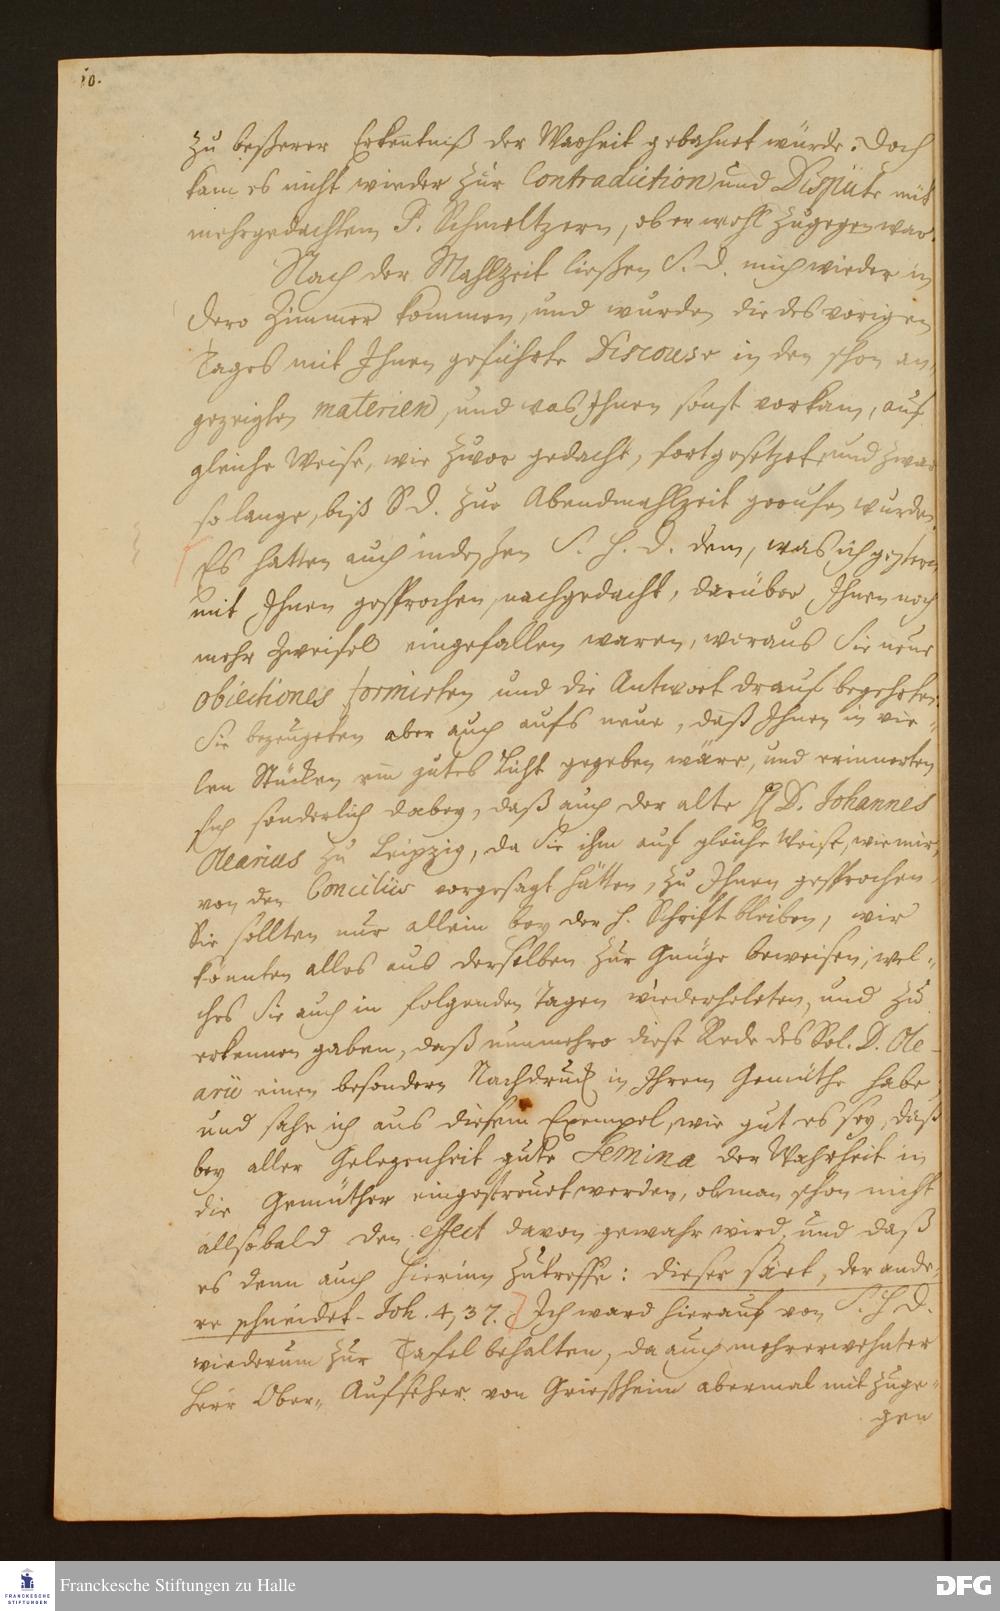 10.
zu beßerer Erkentniß der Warheit gebahnet würde. Doch
kam es nicht wieder zur Contradiction und Dispüte mit
mehrgedachtem P. Schmeltzern, ob er wohl zugegen war.
Nach der Mahlzeit ließen S. D. mich wieder in
dero Zimmer kommen, und wurden die des vorigen
Tages mit Ihnen geführte Discourse in den schon an
gezeigten materien, und was Ihnen sonst vorkam, auf
gleiche Weise, wie zuvor gedacht, fortgesetzet, und zwar
so lange, biß S D. zur Abendmahlzeit geruffen wurden.
Es hatten auch indeßen S. H. D. dem, was ich gestern
mit Ihnen gesprochen, nachgedacht, darüber Ihnen noch
mehr Zweifel eingefallen waren, woraus Sie neue
objectiones formirten und die Antwort drauf begehrten.
Sie bezeugeten aber auch aufs neue, daß Ihnen in vie-
len Stücken ein gutes Licht gegeben wäre, und erinnerten
sich sonderlich dabey, daß auch der alte H D. Johannes
Olearius zu Leipzig, da Sie ihm auf gleiche Weise, wie mir,
von den Conciliis vorgesagt hätten, zu Ihnen gesprochen,
Sie sollten nur allein bey der H. Schrifft bleiben, wir
könnten alles aus derselben zur Gnüge beweisen, wel-
ches Sie auch in folgenden Tagen wiederholeten, und zu
erkennen gaben, daß nunmehro diese Rede des Sel. D. Ole-
arii einen besondern Nachdruck in Ihrem Gemüthe habe,
und sahe ich aus diesem Exempel, wie gut es sey, daß
bey aller Gelegenheit gute Semina der Wahrheit in
die Gemüther eingestreuet werden, ob man schon nicht
allsobald den effect davon gewahr wird, und daß
es denn auch hierinn zutreffe: dieser säet, der ande-
re schneidet. Joh. 4, 37. Ich ward hierauf von S. H D.
wiederum zur Tafel behalten, da auch mehrerwehnter
Herr Ober-Aufseher von Grießheim abermal mit zuge-
gen
Franckesche Stiftungen zu Halle
FRANCKESCHE STIFTUNGEN
DFG